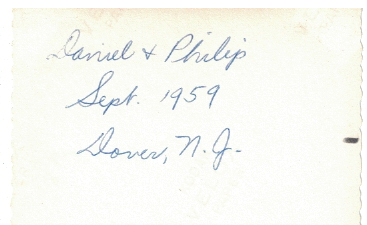 Daniel & Philip
Sept. 1959
Dover, N.J.